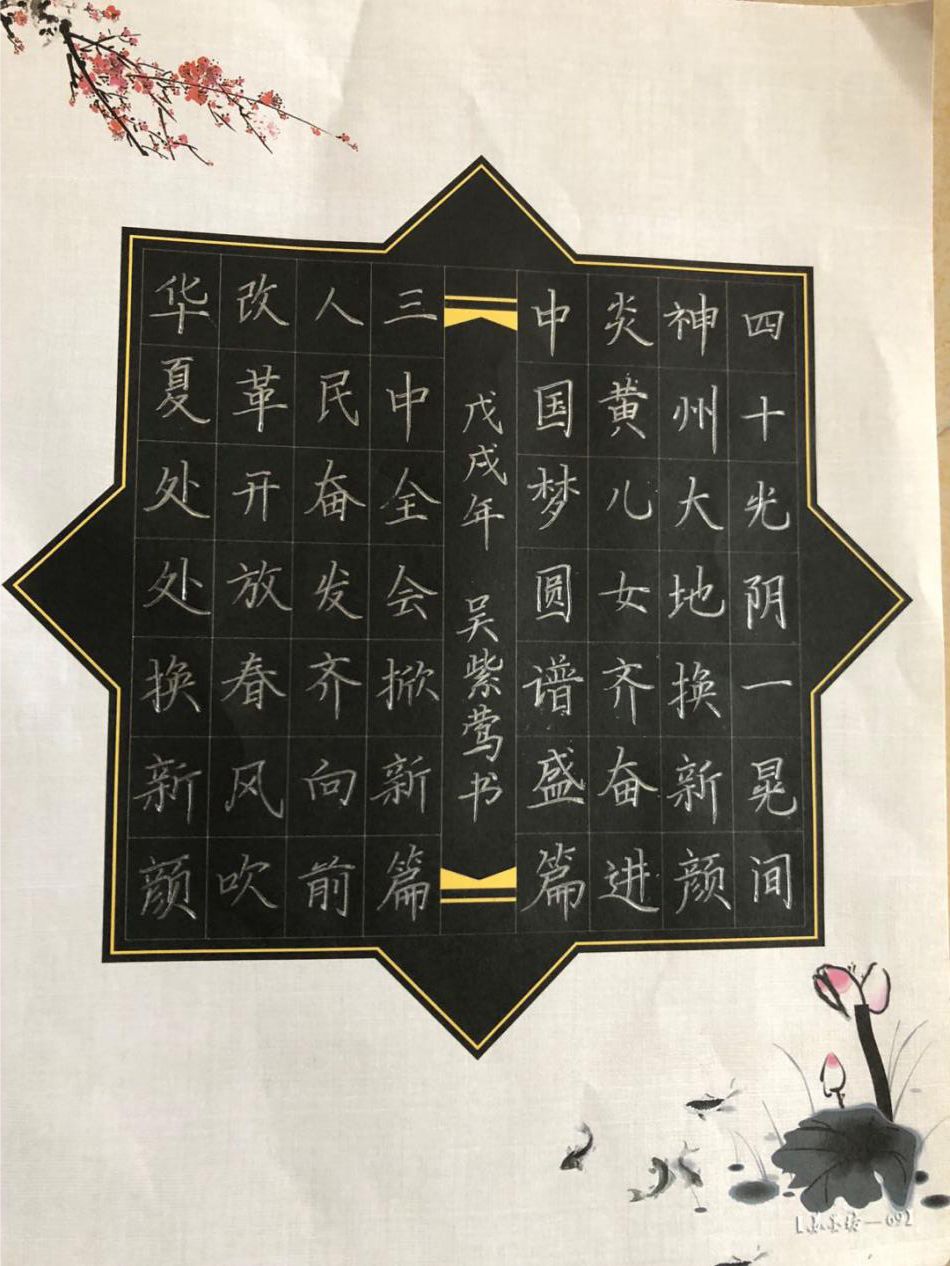 四十光阴一晃间
神州大地换新颜
炎黄儿女齐奋进
中国梦圆谱盛篇
戊戌年 吴紫莺书
三中全会掀新篇
人民奋发齐向前
改革开放春风吹
华夏处处换新颜